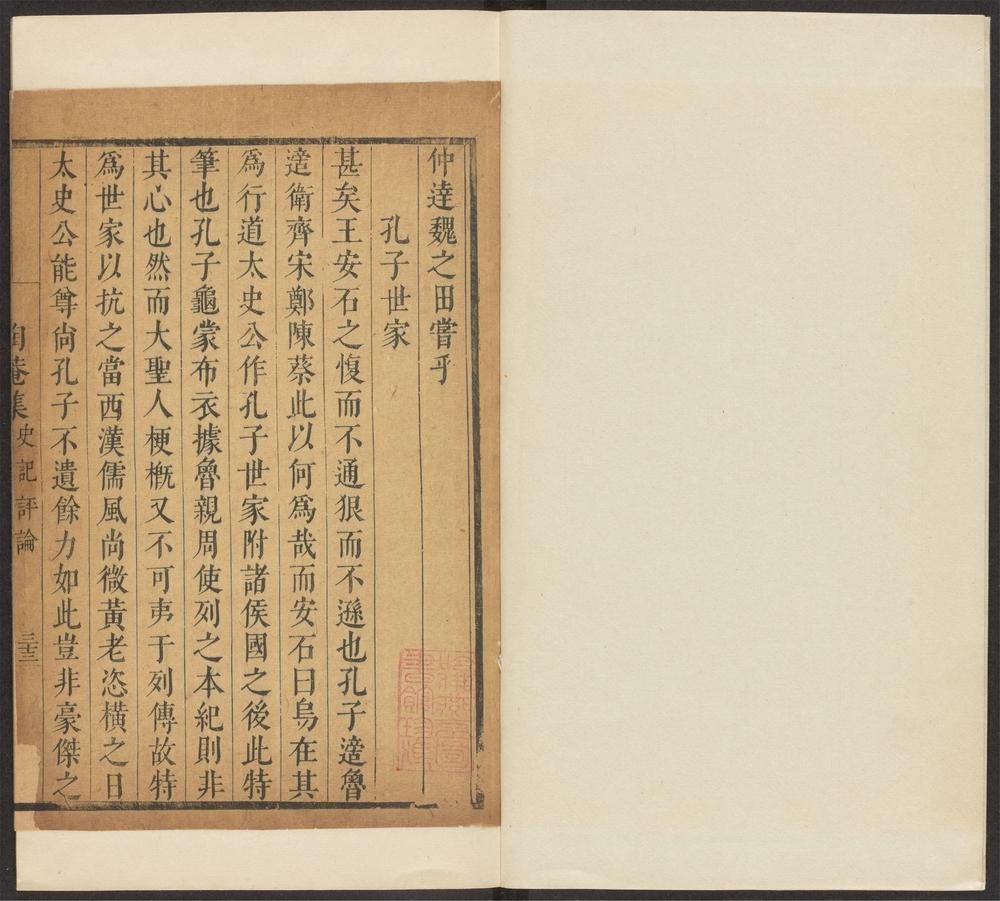 仲達魏之田嘗乎
孔子世家
甚矣王安石之愎而不通狠而不遜也孔子適魯
適衛齊宋鄭陳蔡此以何爲哉而安石曰烏在其
爲行道太史公作孔子世家附諸侯國之後此特
筆也孔子龜蒙布衣據魯親周使列之本紀則非
其心也然而大聖人梗槪又不可夷于列傳故特
爲世家以抗之當西漢儒風尚微黃老恣橫之日
太史公能尊尙孔子不遺餘力如此豈非豪傑之
菴集 史記評論 三十三